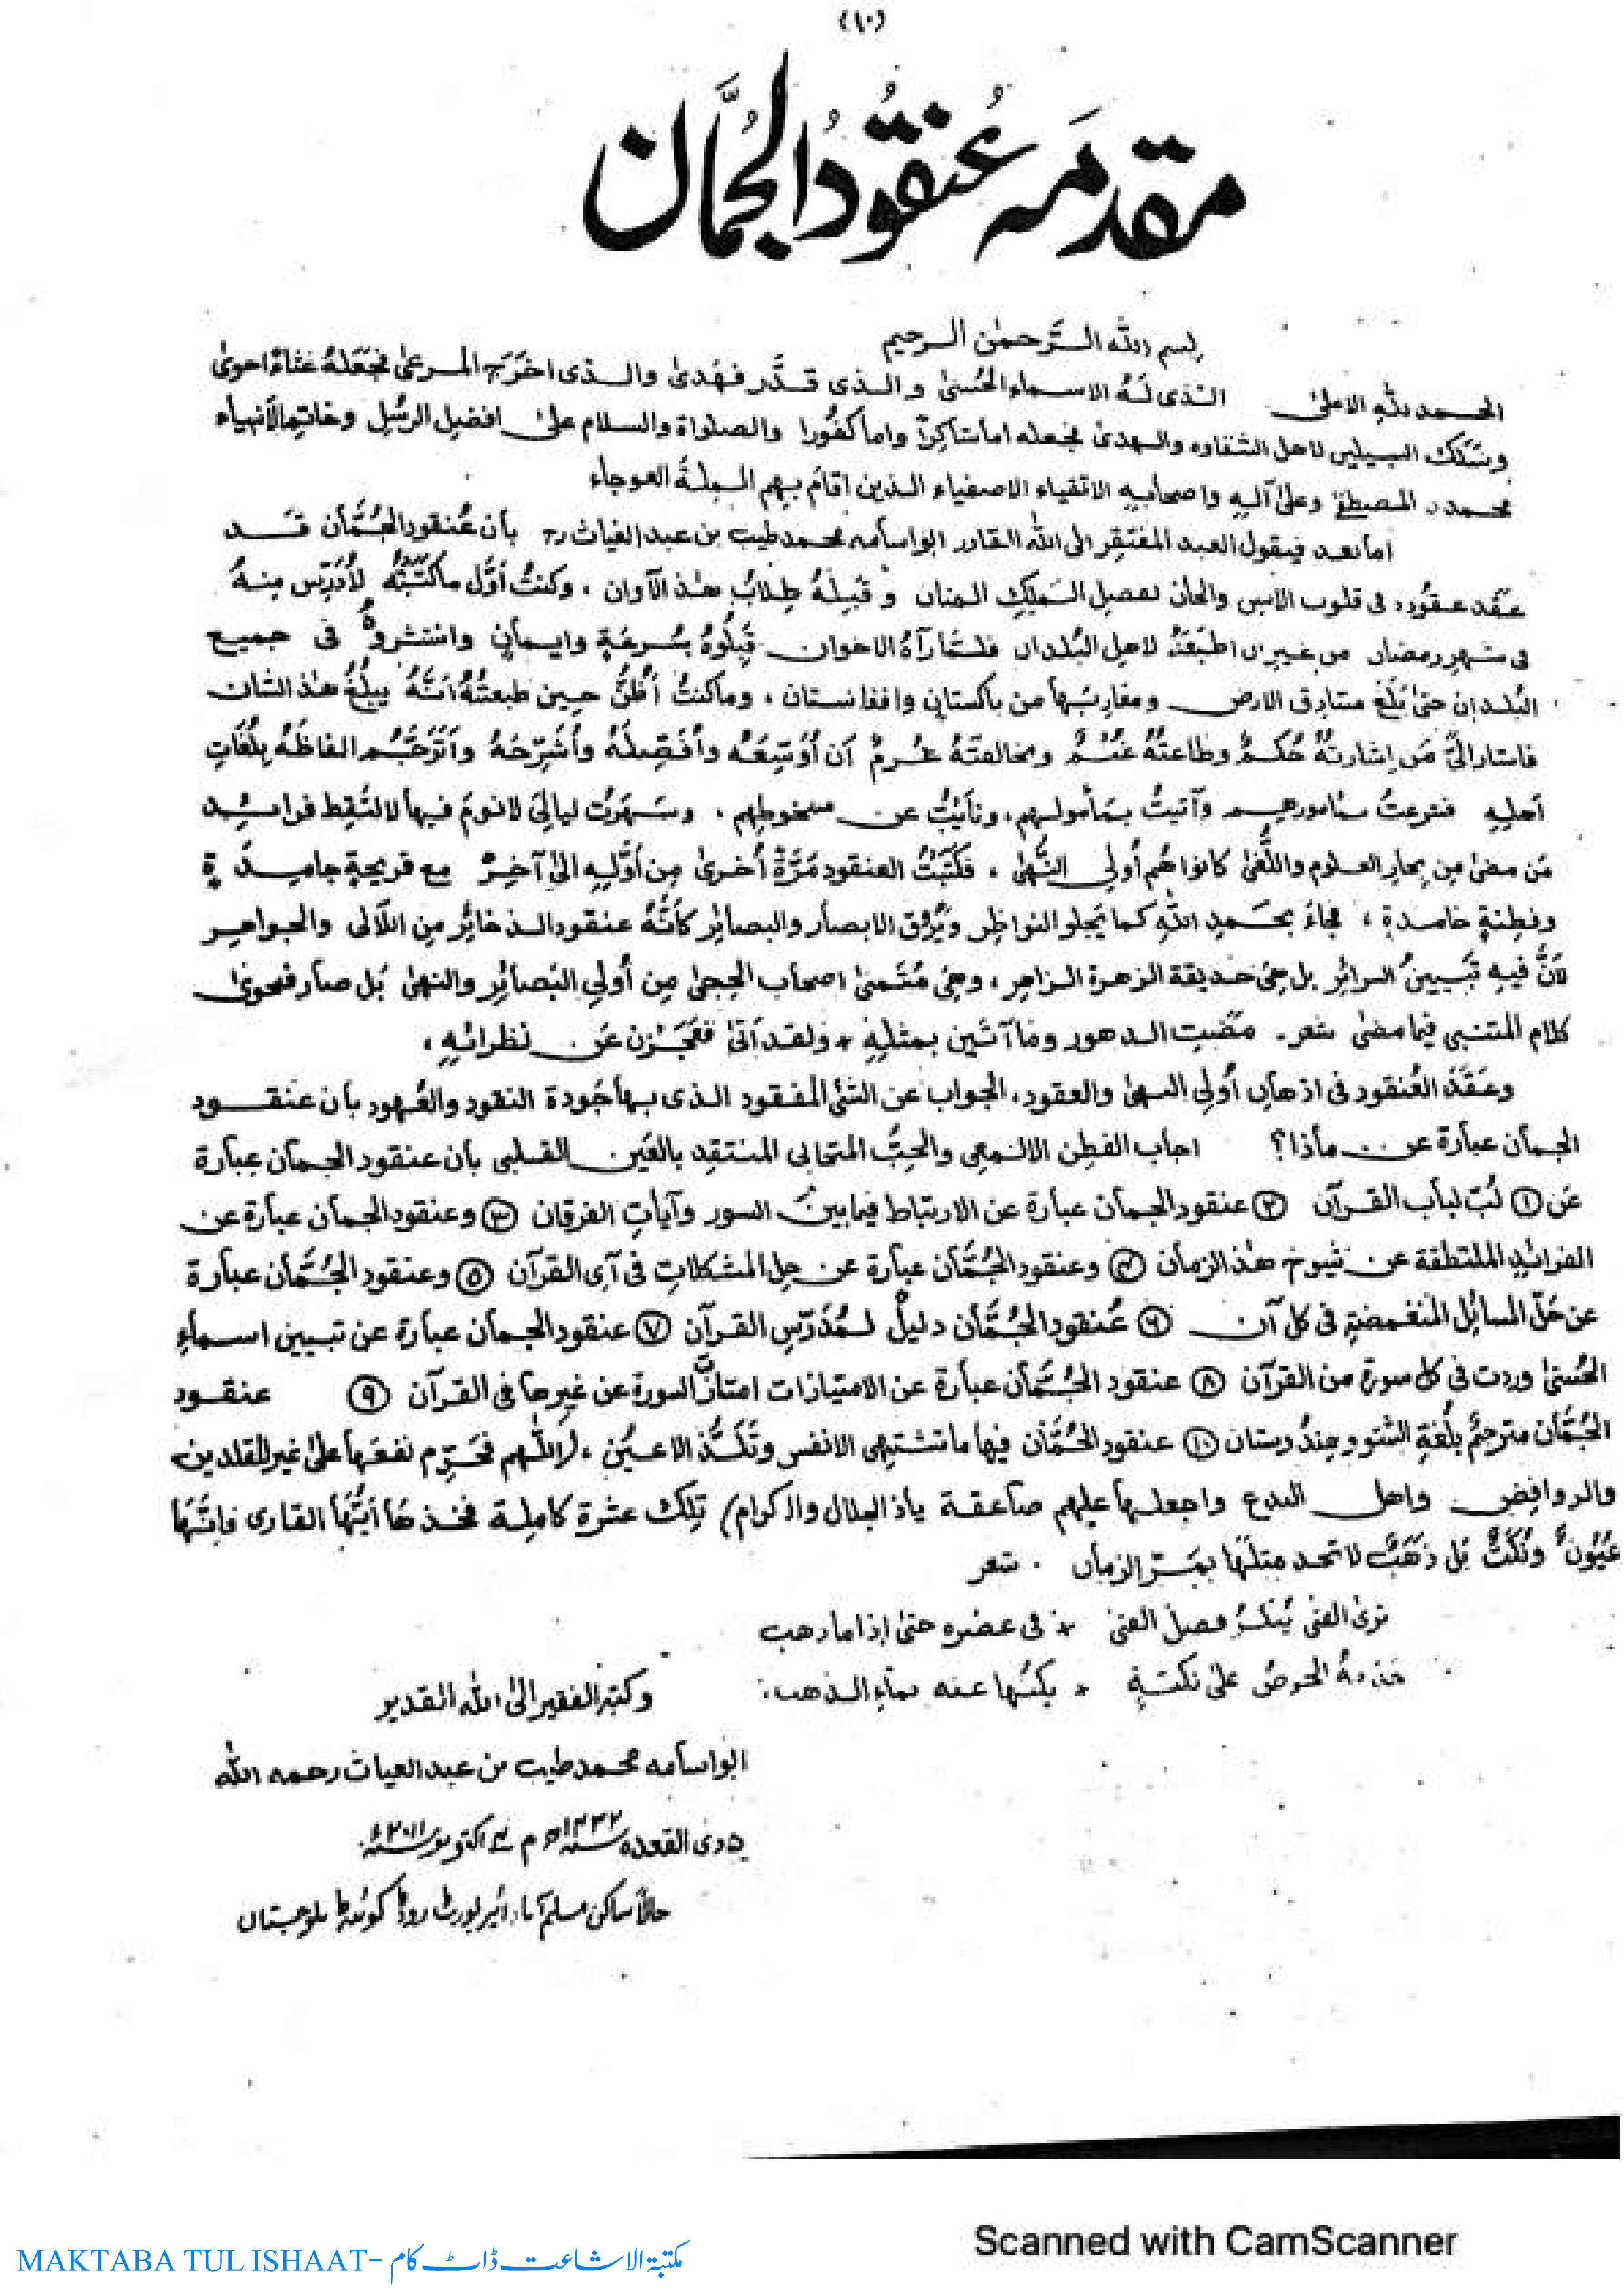 (١٠)
مقدمه عُنقُودُ الجُمَّان
بسم الله الرَّحمٰن الرحيم
الحمد للهِ الاعلىٰ الذى لَهُ الاسماء الحُسنىٰ والذى قدَّر فهَدىٰ والذى اخرَجَ المرعىٰ فجَعَلهُ غثاءً احوىٰ
وسَلَكَ السبيلين لاهل الشقاوه والهدىٰ فجعله اما شاكِرًا واما كفُورا والصلواة والسلام علىٰ افضلِ الرسُلِ وخاتِم الانبياء
محمد المصطفےٰ وعلىٰ آلهٖ واصحابهٖ الاتقياء الاصفياء الذين اقامَ بهم الملةَ العوجاء
اما بعد فيقول العبد المفتقِر الى الله القادر ابو اسامه محمد طيب بن عبد الغياث رح بأن عُنقود الجُمَّان قَد
عَقَد عقُوده فى قلوب الانس والجان بفضل المَلِكِ المنان وقَبِلَهُ طِلابُ هٰذ الآوان ، وكنتُ اَوَّل ما كتبتُهُ لاُدَرِّس مِنهُ
فى شهرِ رمضان من غيرِ ان اطبَعَهُ لاهلِ البُلدان فلمَّا رَآهُ الاخوان قَبِلُوهُ بسُرعَةٍ وايمانٍ وانتشروهُ فى جميع
البُلدانِ حتىٰ بَلَغَ مشارِق الارض ومغارِبَها من باكستانِ وافغانستان ، وما كنتُ أظُنُّ حِين طبعتُهُ اَنَّهُ يبلُغُ هٰذ الشان
فاشار الىَّ مَن اِشارتهُ حُكمٌ وطاعتهُ غُنمٌ ومخالفتهُ غُرمٌ اَن اُوَسِّعَه واُفَصِّلَهُ واُشَرِّحَهُ واُتَرجِمُ الفاظهُ بِلُغَاتِ
اَهلِهٖ فشرعتُ بمامورهم وآتيتُ بمأمولهم، ونأيتُ عن سخوطِهم ، وسَهِرتُ ليالِىَ لا نومَ فيها لالتقِط فرائِد
مَن مضىٰ مِن بِحارِ العلوم واللُّغىٰ كانوا هُم اُولى النُّهىٰ ، فكَتَبتُ العنقود مَرَّةً اُخرىٰ مِن اَوَّلِهٖ الىٰ آخِرٍ مع قريحةٍ جامِدَةٍ
وفطنةٍ خامدةٍ ، فجاءَ بحَمدِ اللهِ كما يَجلو النواظِر ويُرِق الابصار والبصائِر كاَنَّهُ عنقود الذخائِر مِن اللآلى والجواهِر
لاَنَّ فيهِ تَبيينُ السرائِر بل هِىَ حديقة الزهرة الزاهِر ، وهِىَ مُتَمنىٰ اصحاب الحِجىٰ مِن اُولى البَصائِر والنهىٰ بَل صار فحوىٰ
كلام المتنبى فيما مضىٰ شعر۔ مَضَتِ الدهور وما آتَين بمثلِهٖ ٭ ولقد اَتىٰ فعَجَزن عَن نظرائهٖ ،
وعَقَدَ العُنقود فى اذهانِ اُولى النهىٰ والعقود، الجواب عن الشئ المفقود الذى بها جَودة النقود والعُهود بأن عنقود
الجمأن عبأرة عن مأذا؟ اجاب الفطِن الالمعى والحِبُّ المتحابى المنتقِد بالعَين القلبى بأن عنقود الجمأن عبارة
عَن ① لُبّ لبأب القرآن ② عنقود الجمأن عبارة عن الارتباط فيما بين السور وآيأتِ الفرقان ③ وعنقود الجمأن عبأرة عن
الفرائِدِ الملتقطة عن شيوخ هٰذ الزمأن ④ وعنقود الجُمَّأن عبأرة عن حل المشكلاتِ فى آىِ القرآن ⑤ وعنقود الجُمَّأن عبأرة
عن حَلّ المسائِل المُنغمضةِ فى كل آن ⑥ عُنقود الجُمَّأن دليلٌ لمُدَرِّسِ القرآن ⑦ عنقود الجمأن عبأرة عن تبيين اسمأءِ
الحُسنىٰ وردت فى كل سورة من القرآن ⑧ عنقود الجُمَّأن عبأرة عن الامتيازات امتازَ السورة عن غيرِها فى القرآن ⑨ عنقود
الجُمَّأن مترجمٌ بلُغةِ الپشتو وهِندُوستان ⑩ عنقود الجُمَّأن فيها ما تشتهى الانفس وتَلَذُّ الاعيُن ، (اللّٰهم فحَرِّم نفعَها علىٰ غير المقلدين
والروافِض واهل البدع واجعلها عليهم صأعقة يأذ الجلال والاكرام) تِلك عشرة كامِلة فخذها اَيُّهَا القارى فاِنَّهَا
عُيُونٌ ونُكَتٌ بَل ذَهَبٌ لا تجد مثلَهَا بمَرِّ الزمأن ۔ شعر
ترىٰ الفتىٰ يُنكِرُ فضل الفتىٰ ٭ فى عصره حتىٰ اِذا ما ذهب
جدّ بهُ الحرصُ علىٰ نكتةٍ ٭ يكتبُها عنه بماءِ الذهب،
وكتبه الفقير الىٰ الله القدير
ابو اسأمه محمد طيب بن عبد الغياث رحمه الله
۵ ذى القعده سنه ١٤٣٢ھ م ٤ اكتوبر سنه ٢٠١١ء
حالاً ساكن مسلم آباد ائیر پورٹ روڈ کوئٹہ بلوچستان
Scanned with CamScanner
MAKTABA TUL ISHAAT- مکتبۃ الاشاعت ڈاٹ کام